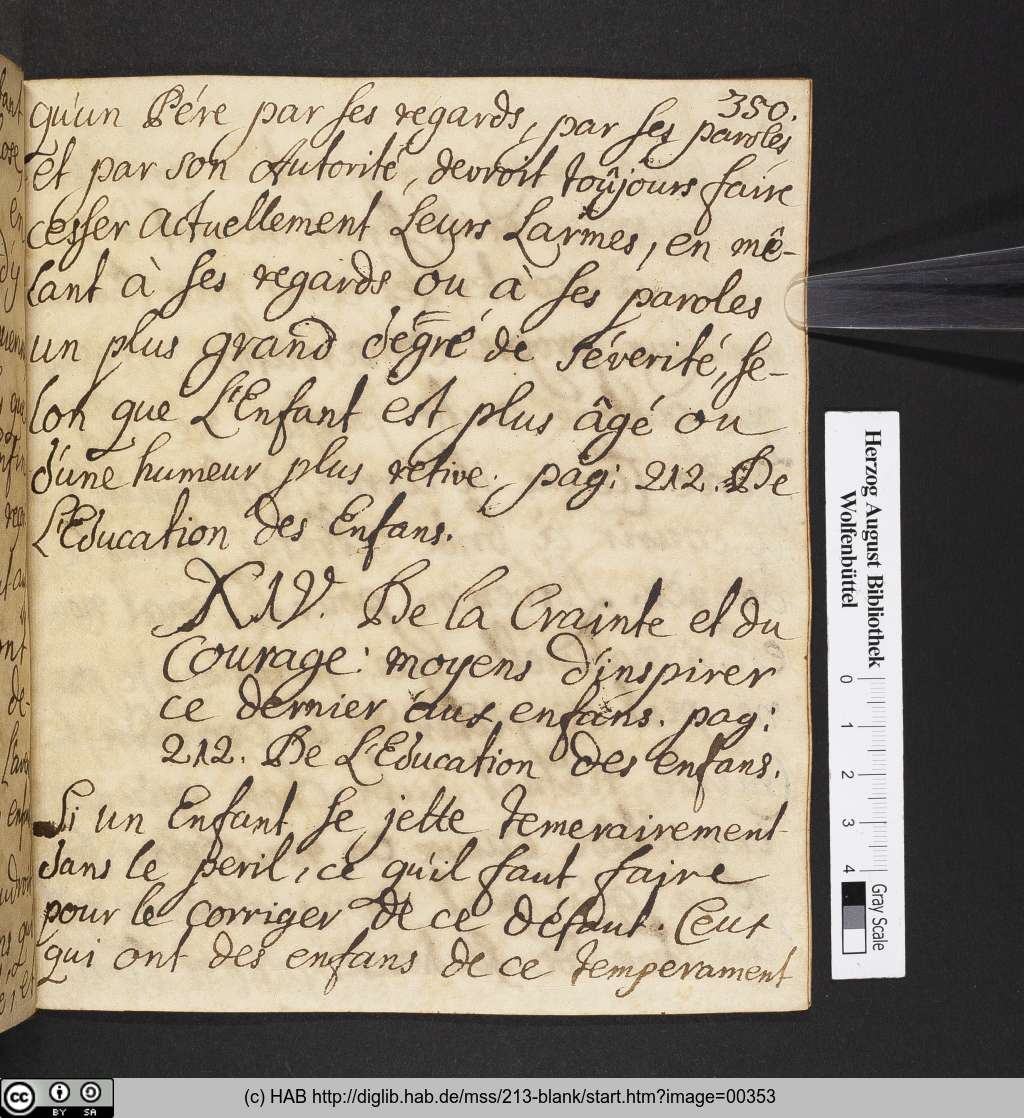 350.
qu'un Pére par ses regards, par ses paroles
et par son Autorité, devroit toûjours faire
cesser actuellement Leurs Larmes, en mê-
lant à ses regards ou à ses paroles
un plus grand dégré de séverité, se-
lon que L'Enfant est plus âgé ou
d'une humeur plus retive. pag: 212. De
L'Education des Enfans.
XIV. De la Crainte et du
Courage: moyens d'inspirer
ce dernier aux enfans. pag:
212. De L'Education des enfans.
Si un Enfant se jette temerairement
dans le peril, ce qu'il faut faire
pour le corriger de ce défaut. Ceux
qui ont des enfans de ce temperament
Herzog August Bibliothek
Wolfenbüttel
0 1 2 3 4
Gray Scale
cc BY SA
(c) HAB http://diglib.hab.de/mss/213-blank/start.htm?image=00353